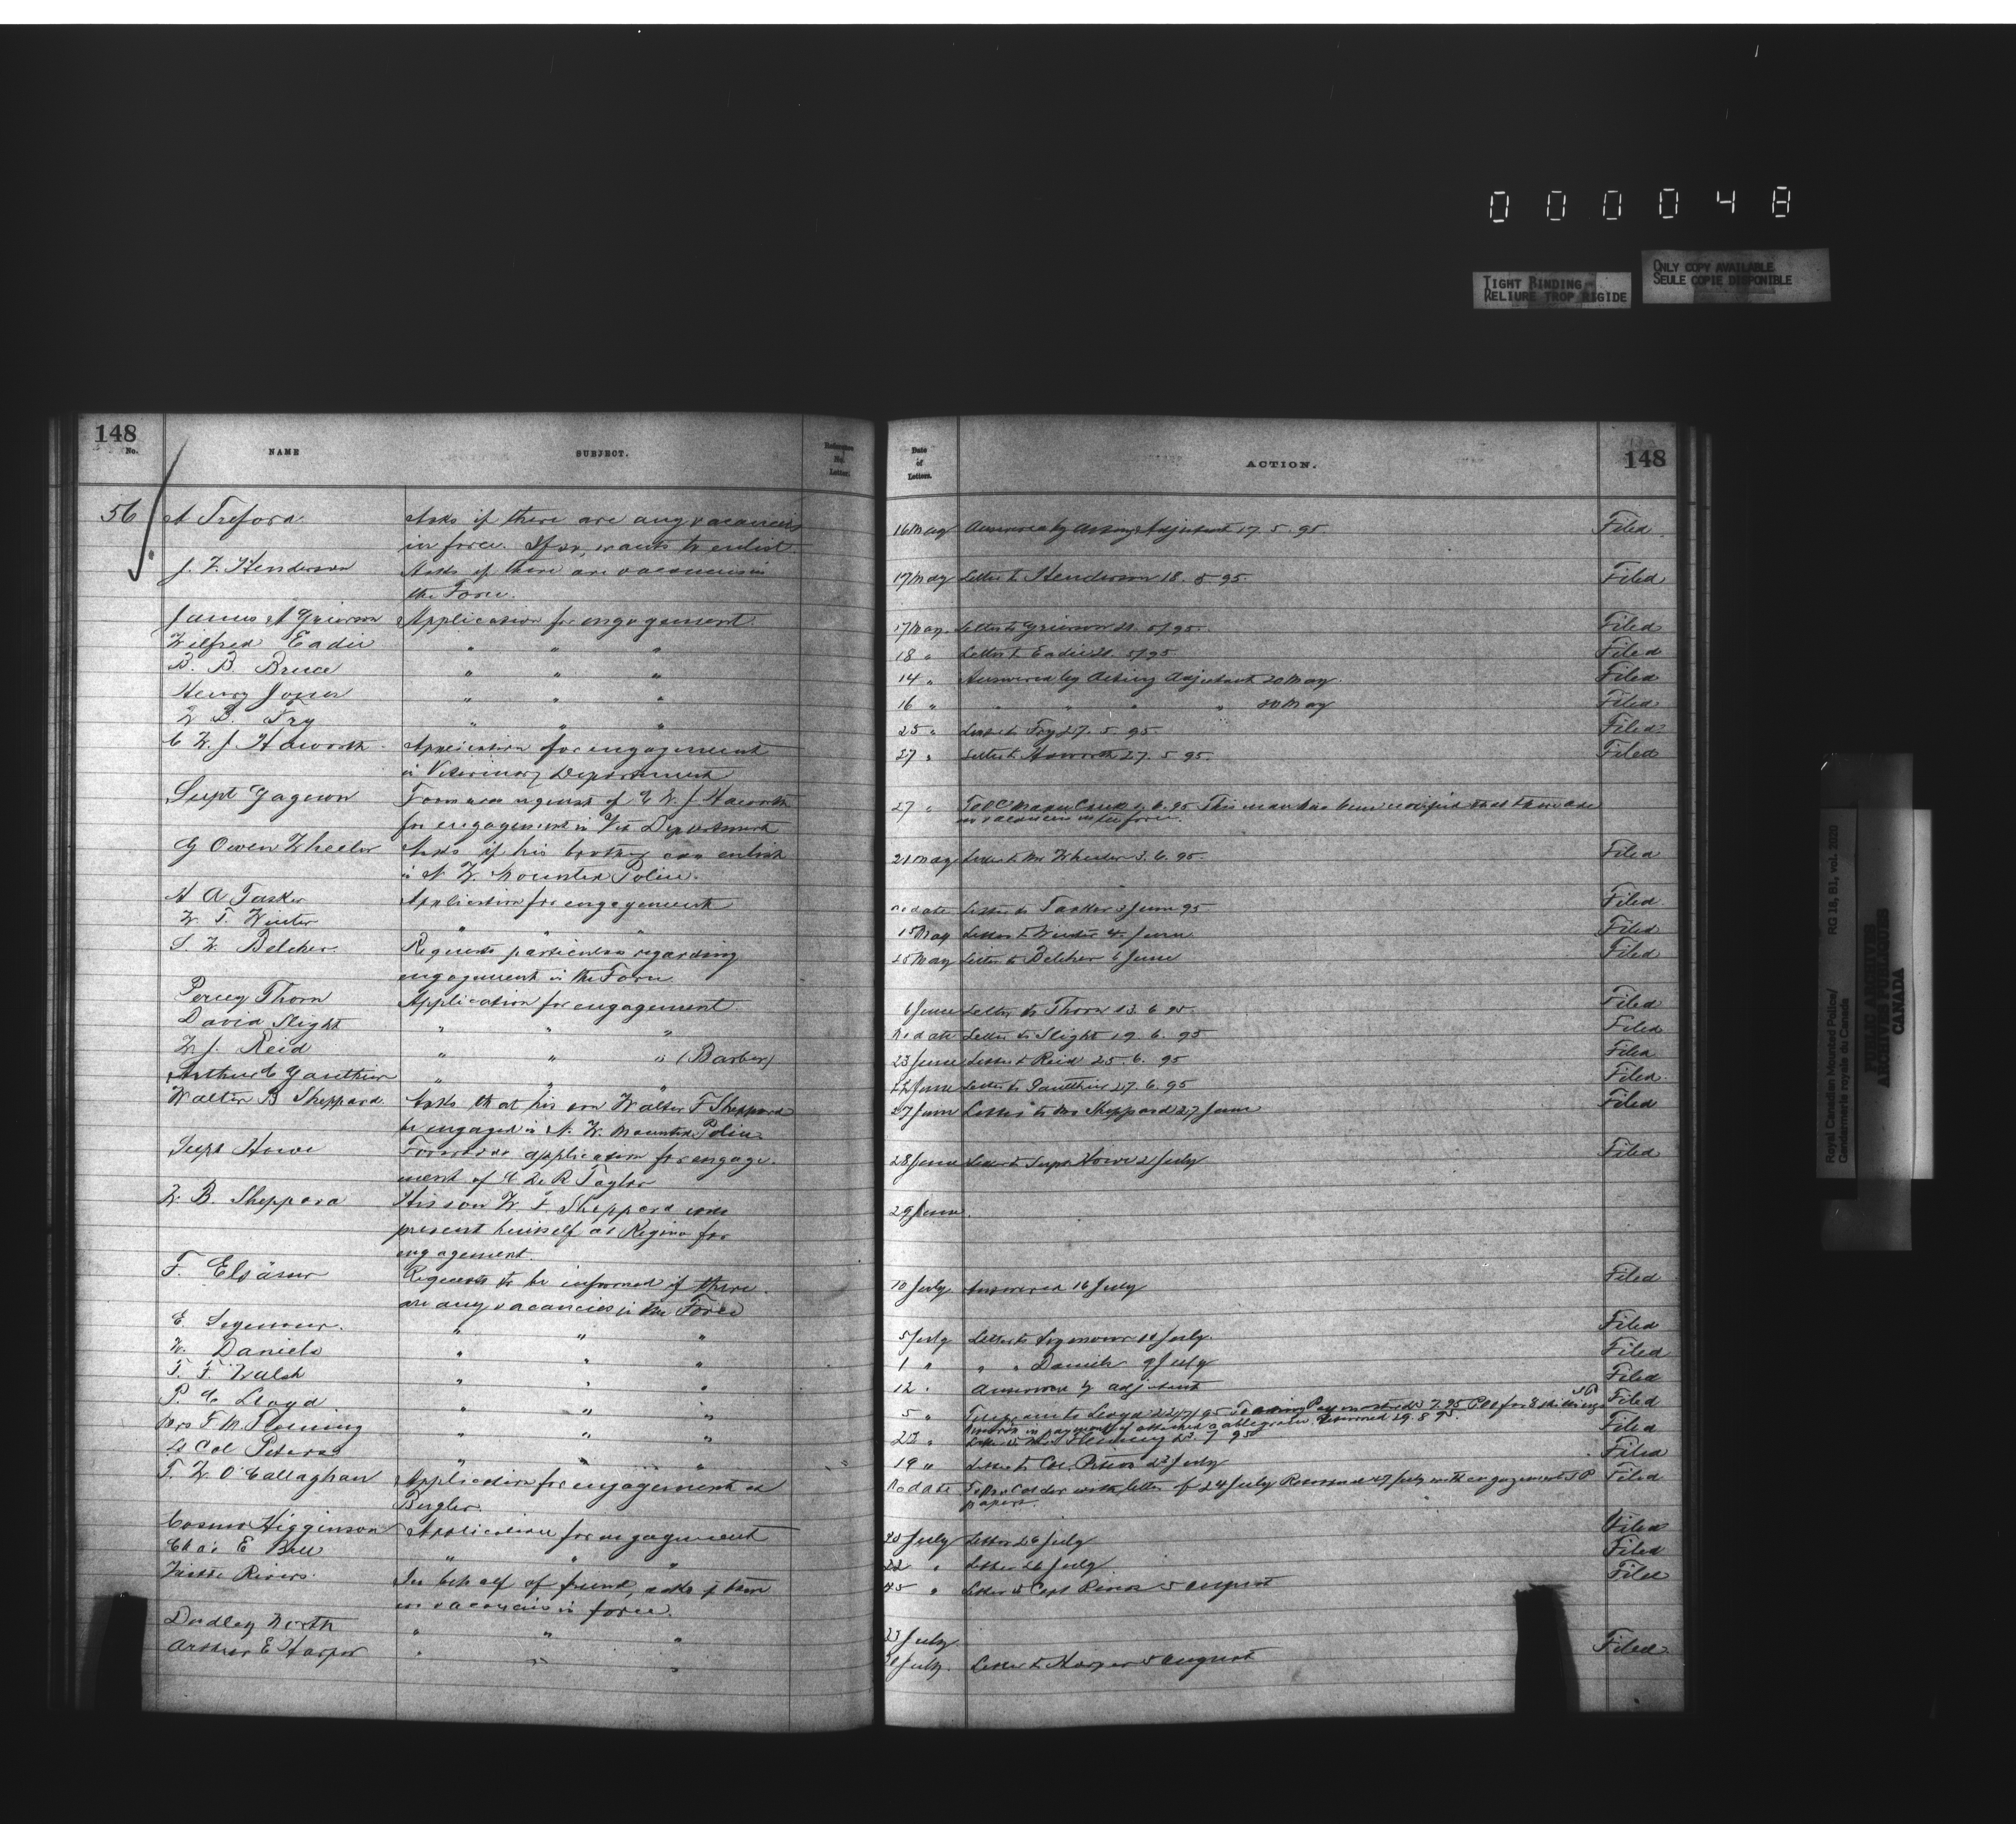 000048
TIGHT BINDING
RELIURE TROP RIGIDE
ONLY COPY AVAILABLE
SEULE COPIE DISPONIBLE
148
No.
NAME
SUBJECT.
Reference
No.
Letter.
56
A Treford
Asks if there are any vacancies
in force. If so, wants to enlist
J. F. Henderson
Asks if there are vacancies in
the Force.
James A Grierson
Application for engagement
Wilfred Eadie
" " "
B. B. Bruce
" " "
Henry Jones
" " "
W B. Fry
" " "
C W. J. Haworth
Application for engagement
in Veterinary Department
Supt Gagnon
request of C W. J. Haworth
for engagement in Vet Department
G Owen Wheeler
Asks if his brother can enlist
in N. W. Mounted Police.
A A Tasker
Application for engagement
W. T. Winter
" " "
S W Belcher
Requests particulars regarding
engagement in the Force
Percy Thorn
Application for engagement
David Slight
" " "
W. J. Reid
" " " (Barber)
Arthur C Gauthier
" " "
Walter B Sheppard
Asks that his son Walter F Sheppard
be engaged in N. W. Mounted Police
Supt Howe
Forwards application for engage-
ment of C De R Taylor
W. B. Sheppard
His son W. F. Sheppard will
present himself at Regina for
engagement.
F. Elsässer
Requests to be informed if there
are any vacancies in the Force
E. Seymour.
" " "
W. Daniels
" " "
T. F. Walsh
" " "
P. C Lloyd
" " "
Mrs F. M. Fleming
" " "
Lt Col Peters
" " "
T. W. O'Callaghan
Application for engagement as
Bugler.
Cosmo Higginson
Application for engagement
Chas E Bell
" " "
Rivers.
In behalf of friend, asks if there
are vacancies in force.
Dudley North
" " "
Arthur E Harper
" " "
Date
of
Letters.
ACTION.
148
16 May Answered by Acting Adjutant 17. 5. 95 Filed
17 May Letter to Henderson 18. 5 95. Filed
17 May. Letter to Grierson 21. 5/95. Filed
18 " Letter to Eadie 21. 5/95 Filed
14 " Answered by Acting Adjutant 20 May. Filed
16 " " " " " 20 May Filed
25 " Letter to Fry 27. 5. 95 Filed
27 " Letter to Haworth 27. 5 95. Filed
27 " To OC Maple Creek 6. 95 This man has been notified that there are
no vacancies in the force.
21 May Letter to Mr Wheeler 3. 6. 95. Filed
No date Letter to Tasker 3 June 95 Filed
15 May Letter to Winter 4. June Filed
25 May Letter to Belcher 6 June Filed
6 June Letter to Thorn 13. 6 95 Filed
No date Letter to Slight 19. 6. 95 Filed
23 June Letter to Reid 25. 6. 95 Filed
22 June Letter to Gauthier 27. 6. 95 Filed
27 June Letter to Mr Sheppard 27 June Filed
28 June Letter to Supt Howe 2 July Filed
29 June.
10 July Answered 16 July Filed
5 July Letter to Seymour 10 July. Filed
1 " " " Daniels 9 July Filed
12 " Answered by Adjutant Filed
5 " Telegram to Lloyd 22/7/95 Filed
in payment of attached cablegram. Returned 29. 8 95.
22 " Letter to Mrs Fleming 7 95 Filed
19 " Letter to Col. Peters 23 July Filed
No date To with letter of 24 July Returned 27 July with engagement Filed
papers.
20 July Letter 26 July Filed
22 " Letter 26 July Filed
25 " Letter to Capt Rivers 5 August Filed
23 July
July. Letter to Harper 5 August Filed
Royal Canadian Mounted Police/
Gendarmerie royale du Canada
RG 18, B1, vol. 2030
PUBLIC ARCHIVES
ARCHIVES PUBLIQUES
CANADA